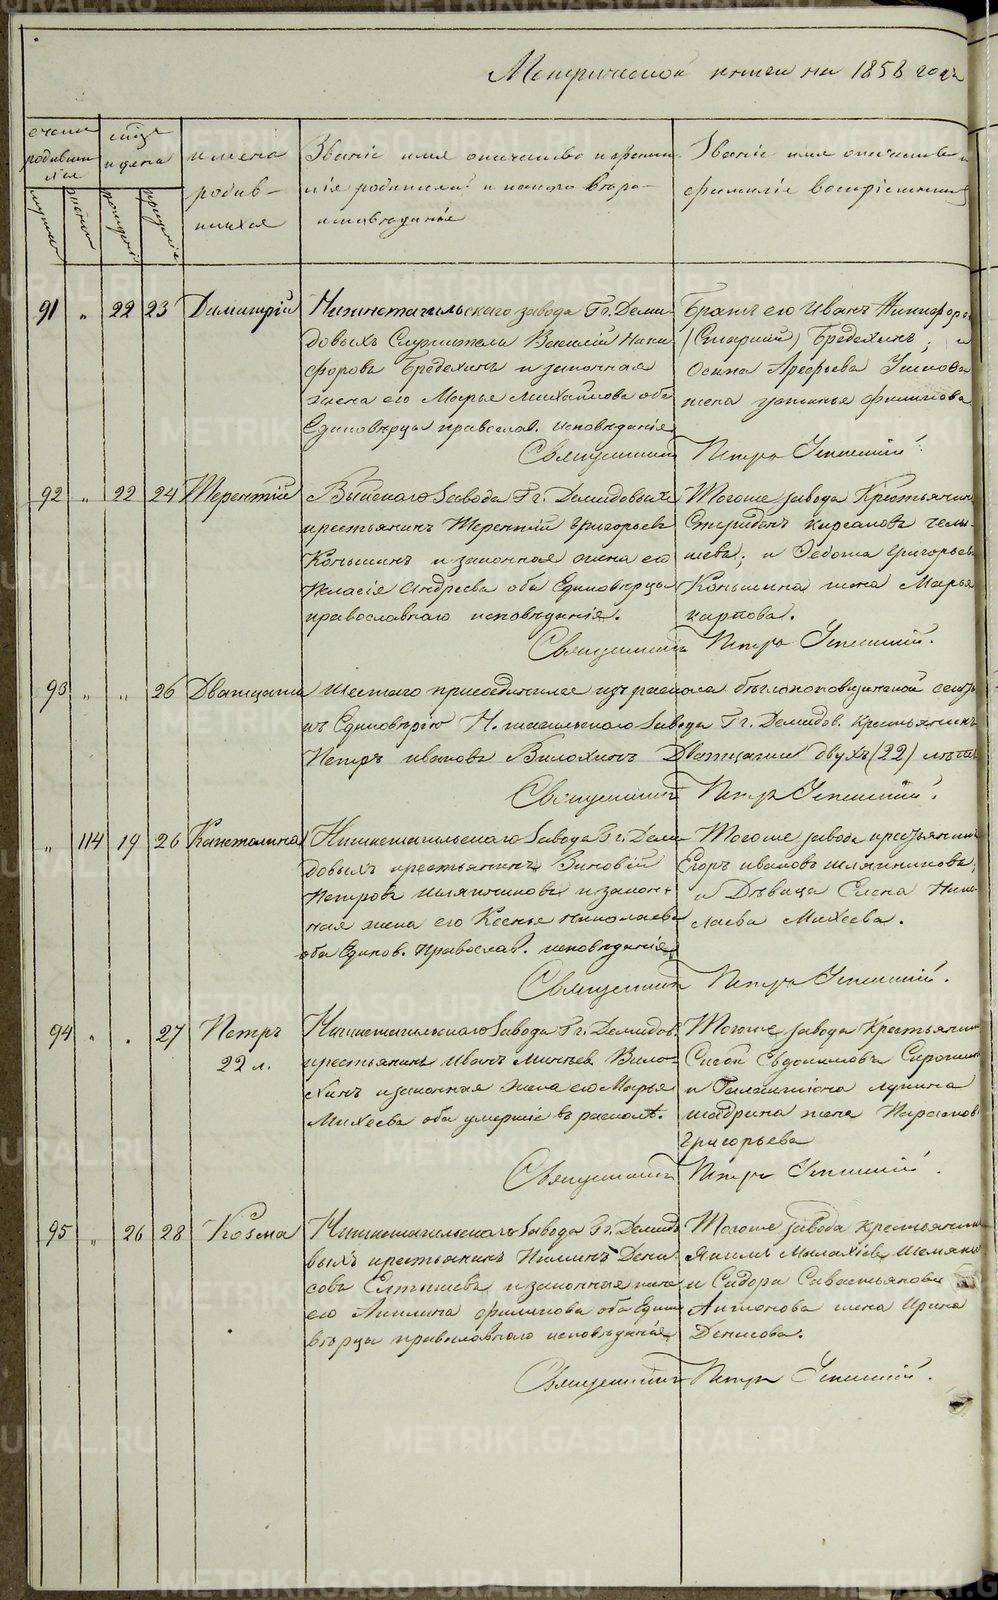 Метрической книги на 1858 годъ
счетъ родившихся
мѣсяцъ и день
имена родив-шихся
Званіе имя отчество и фами-
лія родителей и какого вѣро-
исповѣданія
Званіе имя отчество и
фамилія воспріемниковъ
91 " 22 23 Димитрій
Нижнетагильскаго завода Гг. Деми-
довыхъ Служитель Василій Ники-
форовъ Бродехинъ и законная
жена его Марья Михайлова оба
Единовѣрцы православ. исповѣданія
Братъ его Иванъ Никифоровъ
(Старшій) Бредехинъ; и
Осипа Арефьева Ушкова
жена Устинья Филипова
Священникъ Петръ Успенскій.
92 " 22 24 Терентій
Выйскаго завода Гг. Демидовыхъ
крестьянинъ Терентій Григорьевъ
Коньшинъ и законная жена его
Пелагія Андреева оба Единовѣрцы
православнаго исповѣданія.
Тогоже завода Крестьянинъ
Спиридонъ Карпловъ Челы-
шевъ; и Федота Григорьева
Коньшина жена Марья
Карпова.
Священникъ Петръ Успенскій.
93 " " 26 Двадцать шестаго присоединился изъ раскола бѣглопоповщинской секты
къ Единовѣрію Н. тагильскаго завода Гг. Демидов. крестьянинъ
Петръ Ивановъ Вилохинъ Двадцати двухъ (22) лѣтъ
Священникъ Петръ Успенскій.
" 114 19 26 Капетолина
Нижнетагильскаго завода Гг. Деми-
довыхъ крестьянинъ Зиновій
Петровъ Шляпниковъ и закон-
ная жена его Ксенья Николаева
оба Единов. Православ. исповѣданія.
Тогоже завода крестьянинъ
Егоръ Ивановъ Шляпниковъ;
и Дѣвица Елена Нико-
лаева Михеева.
Священникъ Петръ Успенскій.
94 " . 27 Петръ
22 л.
Нижнетагильскаго завода Гг. Демидов.
крестьянинъ Иванъ Вило-
хинъ и законная жена его Марья
Михеева оба умершіе въ расколѣ.
Тогоже завода Крестьянинъ
Евдокимовъ
и Галактіона Лупина
Шадрина жена
Григорьева
Священникъ Петръ Успенскій.
95 " 26 28 Козма
Нижнетагильскаго завода Гг. Демидо-
выхъ крестьянинъ Пименъ Дени-
совъ и законная жена
его Акилина Филипова оба Едино-
вѣрцы православнаго исповѣданія
Тогоже завода крестьянинъ
Малахіевъ
и Сидора Савастьянова
Антонова жена Ирина
Денисова.
Священникъ Петръ Успенскій.
METRIKI.GASO-URAL.RU